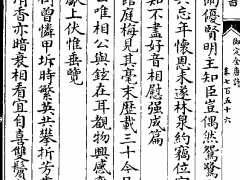 御定全唐詩
卷七百五十六
間優賢明主知臣豈偶然鴛鷺
共忘年懷恩未遂林泉約竊位空
知不盡好音相慰強成篇
館庭梅見其毫末歷載二十今
唯相公與鉉在耳觀物興感
獻上伏惟垂覽
曾憐甲坼時繁英共攀折芳
清香亦暗衰相看宜自喜雙鬢